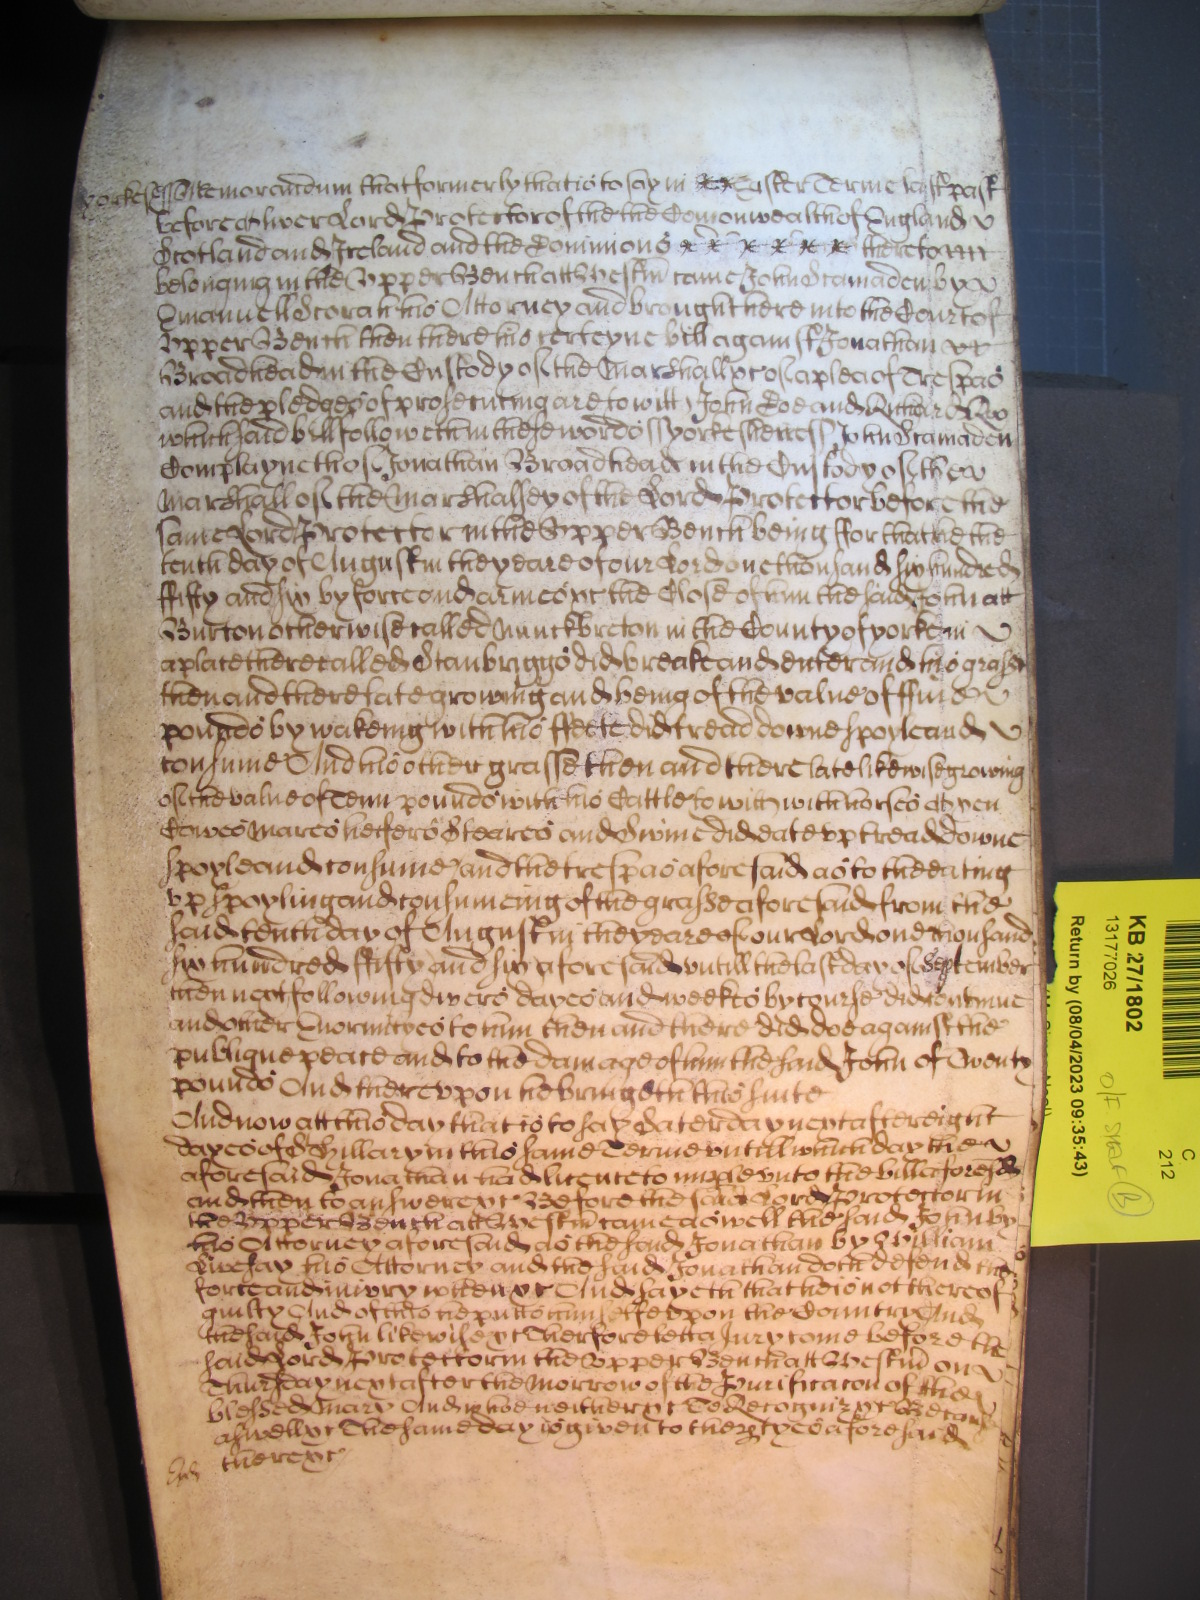 yorkess Memorandum that formerly that is to say in Easter Terme last past
before Oliver Lord Protector of the the Comonwealth of England
Scotland and Ireland and the Dominions thereto
belonging in the Upper Bench att Westm came John Scamaden by
Emanuell Scorah his Attorney and brought here into the Court of
Upper Bench then there his certeyne bill against Jonathan
Broadhead in the Custody of the Marshall &c of a plea of Trespas
and the pledges of prosecuting are to witt John Doe and Richard Roe
which said bill followeth in these words ss yorkeshire ss John Scamaden
Complayneth of Jonathan Broadhead in the Custody of the
Marshall of the Marshalsey of the Lord Protector before the
same Lord Protector in the Upper Bench being ffor that he the
tenth day of August in the yeare of our Lord one thousand six hundred
ffifty and six by force and armes &c the Close of him the said John att
Burton otherwise called Munckbreton in the County of yorke in
a place there called Stanbriggs did breake and enter and his grasse
then and there late growing and being of the value of ffive
pounds by wakeing with his ffeete did tread downe spoyle and
consume And his other grasse then and there late likewise growing
of the value of Tenn pounds with his Cattle to witt with horses Oxen
Cowes Mares heifers Steares and Swine did eate up tread downe
spoyle and consume and the trespas aforesaid as to the eating
up spoyling and consumeing of the grasse aforesaid from the
said tenth day of August in the yeare of our Lord one thousand
six hundred ffifty and six aforesaid untill the last day of September
then next following divers dayes and weekes by course did continue
and other Enormityes to him then and there did doe against the
publique peace and to the damage of him the said John of Twenty
pounds And thereupon he bringeth this suite
And now att this day that is to say Saterday next after eight
dayes of St Hillary in this same Terme untill which day the
aforesaid Jonathan had licence to imple unto the bill aforesd
and then to answere &c Before the said Lord Protector in
the Upper Bench att Westm came aswell the said John by
his Attorney aforesaid as the said Jonathan by William
Livesay his Attorney and the said Jonathan doth defend the
force and iniury when &c And sayeth that he is not thereof
guilty And of this he putts himselfe upon the Country And
the said John likewise &c Therfore lett a Jury come before the
said Lord Protector in the Upper Bench att Westm on
Thursday next after the Morrow of the Purificacon of the
blessed Mary And whoe neither &c To Recognize &c Because
aswell &c The same day is given to the ptyes aforesaid
there &c
KB 27/1802
13177026
Return by (08/04/2023 09:35:43)
C
212